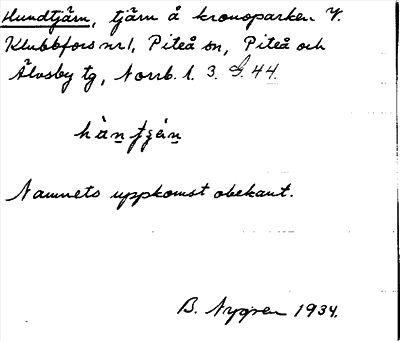 Hundtjärn, tjärn å kronoparken V.
Klubbfors nr 1, Piteå sn, Piteå och
Älvsby tg, Norrb. l. 3. G. 44.
hàn̲ tjä́n̲
Namnets uppkomst obekant.
B. Nygren 1934.